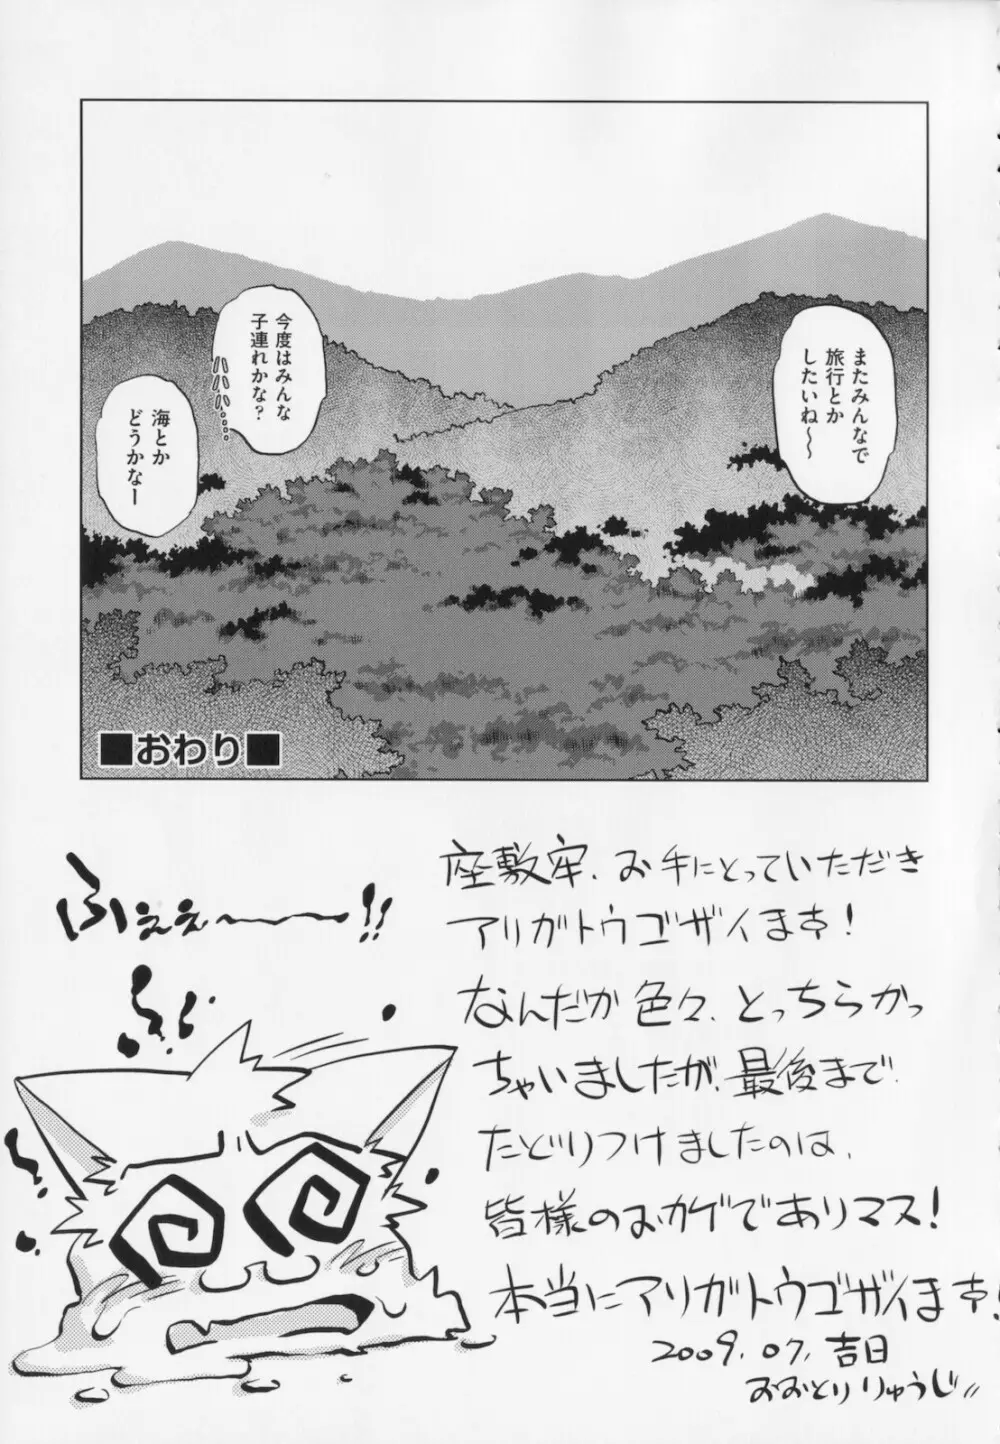 まだみんなで
旅行とか
したいね～
今度はみんな
子連れかな？
ハハハハ……
海とか
どうかなー
■おわり■
ふぇぇ〜〜!!
座敷牢、お手にとっていただき
アリガトウゴザイます!
なんだか色々、とっちらかっ
ちゃいましたが、最後まで
たどりつけましたのは、
皆様のおカゲでありマス!
本当にアリガトウゴザイます!
2009.07.吉日
おおとりりゅうじ